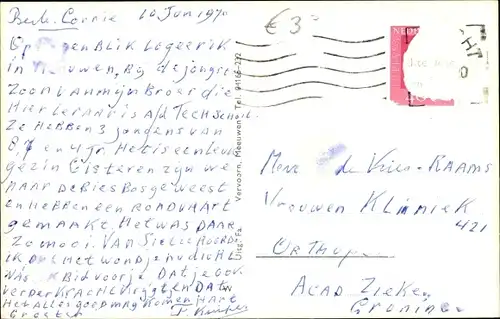 Beste Corrie 10 Jan 1970
Op ogenblik logeer ik
in Meeuwen, bij de jongste
zoon van mijn broer die
hier leraar is a/d Tech School.
Ze hebben 3 jongens van
8, 7 en 4 jr. Het is een leuk
gezin Gisteren zijn we
naar de Biesbos geweest
en hebben een rondvaart
gemaakt. Het was daar
zo mooi. Van hoorde
ik dat het wondje nu dicht
was. Ik bid voor je dat je ook
verder kracht krijgt en dat
het alles goed mag komen Hart
Groeten
Uitg. Fa. Vervoorn, Meeuwen - Tel. 04166-272
€ 3
NEDERLAND
Mevr de Vries-Raams
Vrouwen Kliniek
421
Acad Zieken
Groningen